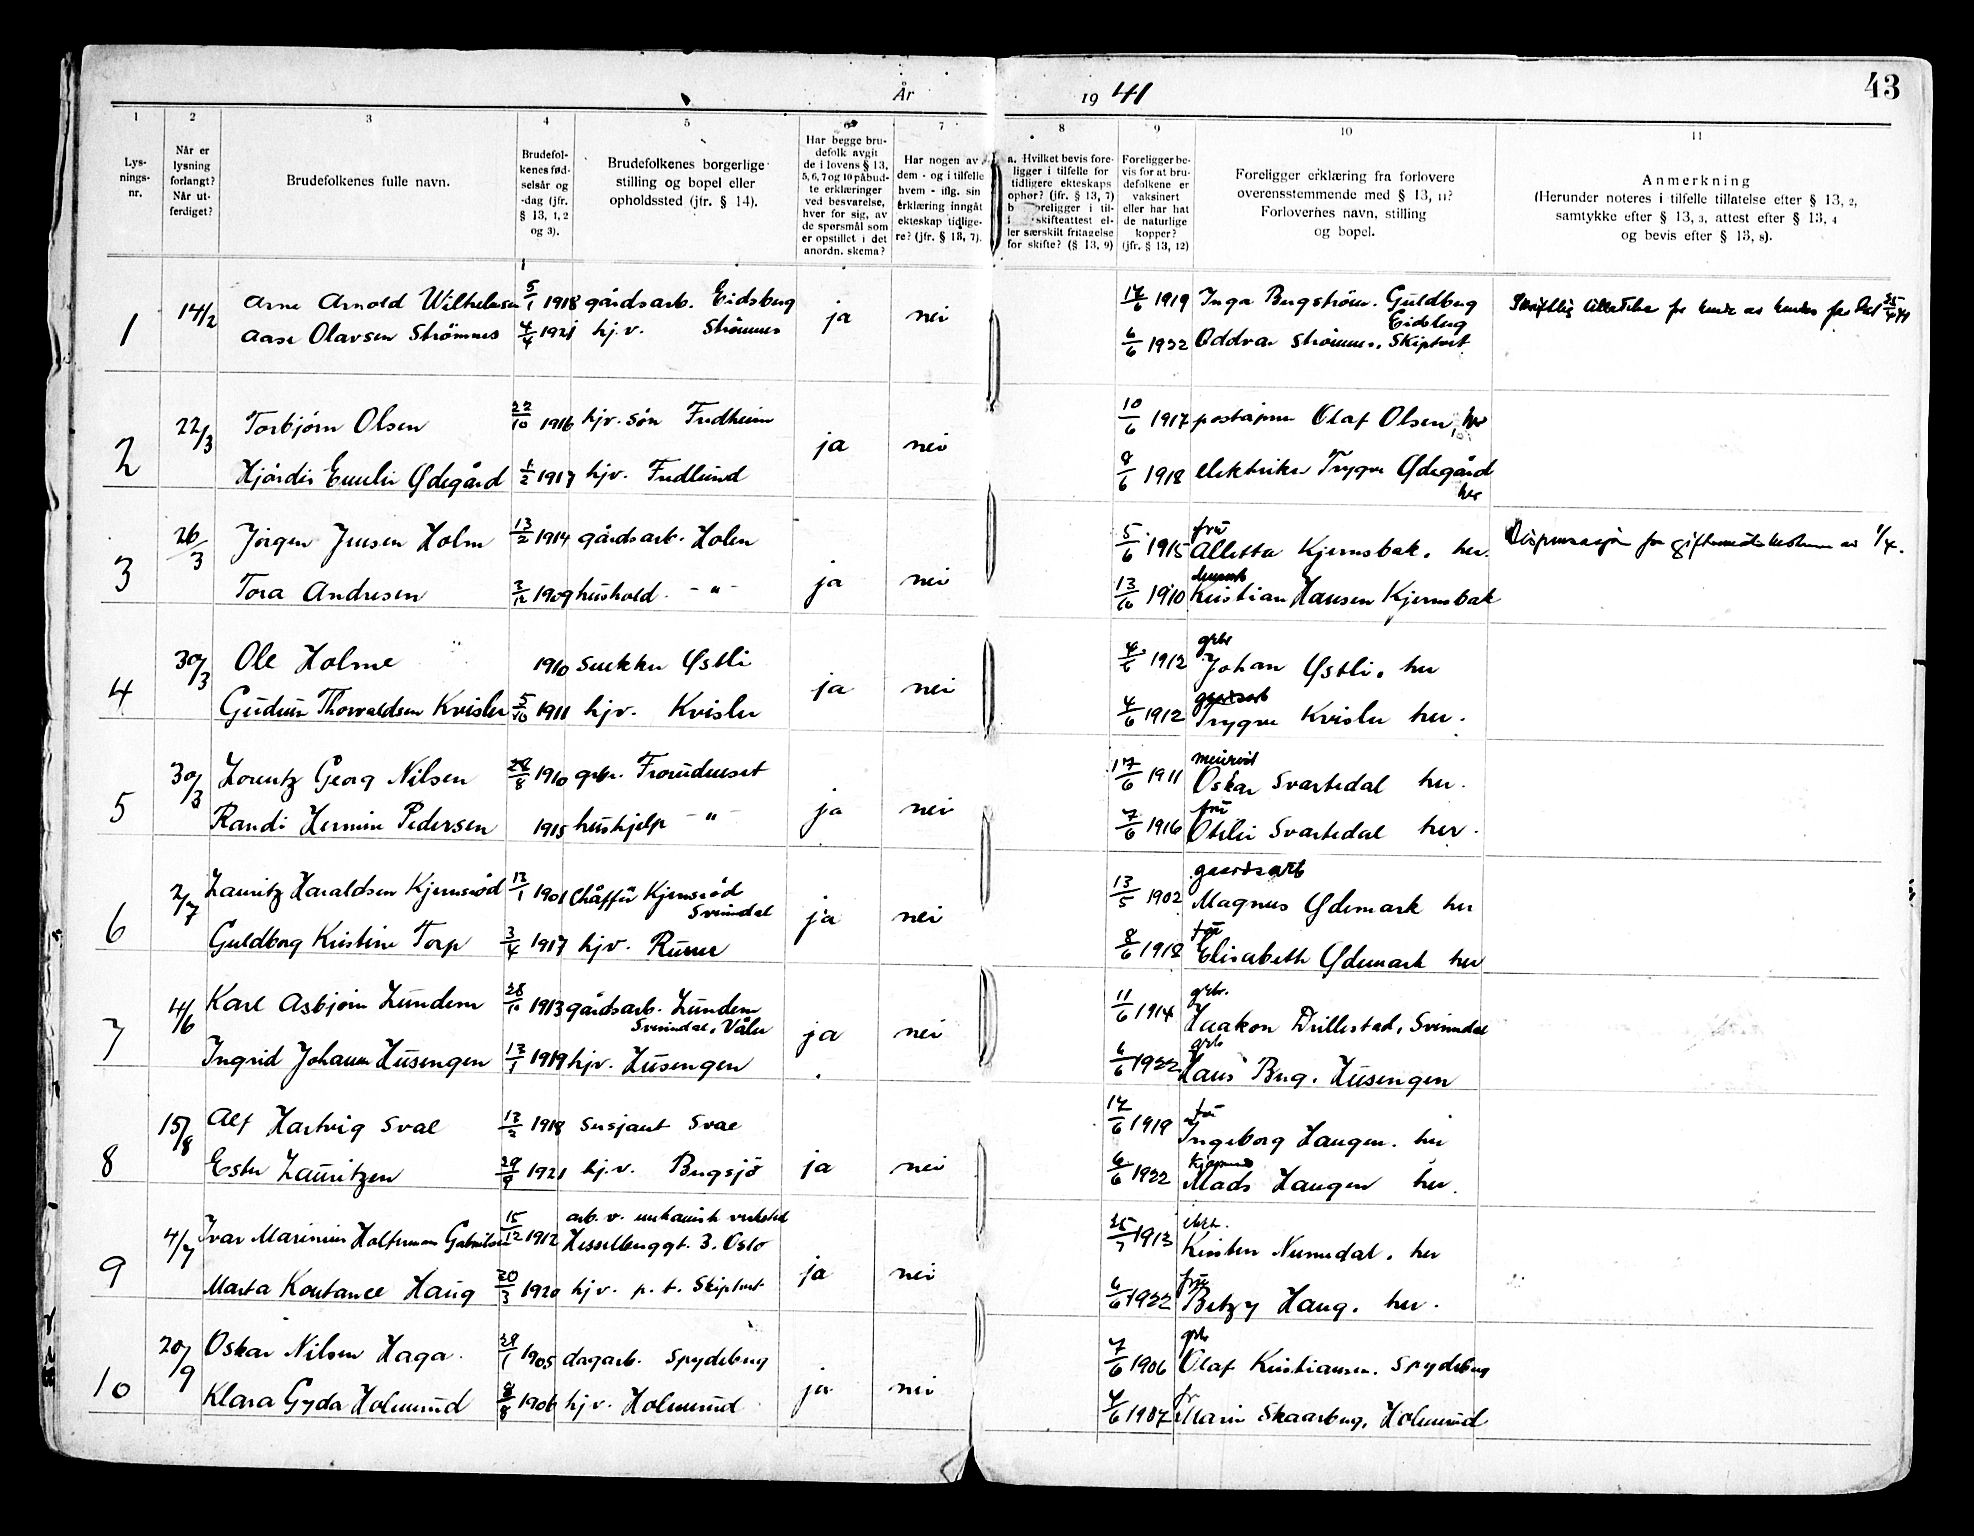 43
År 1941
1
2
3
4
5
6
7
8
9
10
11
Lys-
nings-
nr.
Når er
lysning
forlangt?
Når ut-
ferdiget?
Brudefolkenes fulle navn.
Brudefol-
kenes fød-
selsår og
-dag (jfr.
§ 13, 1, 2
og 3).
Brudefolkenes borgerlige
stilling og bopel eller
opholdssted (jfr. § 14).
Har begge bru-
defolk avgit
de i lovens § 13,
5, 6, 7 og 10 påbud-
te erklæringer
ved besvarelse,
hver for sig, av
de spørsmål som
er opstillet i det
anordn. skema?
Har nogen av
dem - og i tilfelle
hvem - iflg. sin
erklæring inngåt
ekteskap tidlige-
re? (jfr. § 13, 7).
a. Hvilket bevis fore-
ligger i tilfelle for
tidligere ekteskaps
ophør? (jfr. § 13, 7)
b. Foreligger i til-
skifteattest el-
ler særskilt fritagelse
for skifte? (§ 13, 9)
Foreligger be-
vis for at bru-
defolkene er
vaksinert
eller har hat
de naturlige
kopper?
(jfr. § 13, 12)
Foreligger erklæring fra forlovere
overensstemmende med § 13, 11?
Forlovernes navn, stilling
og bopel.
Anmerkning
(Herunder noteres i tilfelle tillatelse efter § 13, 2,
samtykke efter § 13, 3, attest efter § 13, 4
og bevis efter § 13, 8).
1 14/2 Arne Arnold Wilhelmsen 5/1 1918 gårdsarb. Eidsberg ja nei 1919 Inga Bergstrøm. Guldberg
Eidsberg
Aase Olavsen Strømnes 4/4 1921 hj.v. Strømnes 6/6 1922 Oddvar Strømnes, Skiptvet
Skriftlig tillatelse fra
2 22/3 Torbjørn Olsen 22/10 1916 hjv. søn Fredheim ja nei 10/6 1917 poståpner Olaf Olsen, her
Hjördis Emilie Ødegård 1/2 1917 hjv. Fredlund 8/6 1918 elektriker Trygve Ødegård
her
3 26/3 Jörgen Jensen Holm 13/2 1914 gårdsarb. Holen ja nei 5/6 1915 fru
Alletta Kjernsbak. her.
Dispensasjon for giftermål 1/4.
Tora Andresen 3/12 1909 hushold. -"- 13/6 1910
Kristian Hansen Kjernsbak
4 30/3 Ole Holme 1910 snekker Østli ja nei 4/6 1912 grbr
Johan Østli. her
Gudrun Thorvaldsen Kvisler 5/10 1911 hjv. Kvisler 4/6 1912 gaardsarb
Trygve Kvisler her.
5 30/3 Lorentz Georg Nilsen 28/8 1910 grbr. Frorudneset ja nei 17/6 1911
Oskar Svartedal her.
Randi Hermine Pedersen 1915 hushjelp -"- 7/6 1916 fru
Otelie Svartedal her.
6 2/7 Lauritz Haraldsen Kjernsröd 12/1 1901 Chåffür Kjernsröd
Svinndal ja nei 13/5 1902 gaardsarb
Magnus Ødemark her
Guldborg Kristine Torp 3/4 1917 hjv. 8/6 1918 fru
Elisabeth Ødemark her
7 4/6 Karl Asbjörn Lundem 28/10 1913 gårdsarb. Lundem
Svinndal, Våler ja nei 11/6 1914 grbr.
Haakon Drillestad, Svinndal
Ingrid Johanne Husengen 13/1 1919 hjv. Husengen 6/6 1922 grb
Hans Husengen
8 15/8 Alf Hartvig Svae 13/2 1918 sersjant Svae ja nei 1919 fru
Ingeborg Haugen. her
Ester Lauritzen 29/9 1921 hj.v. Bergsjö 6/6 1922 kjøpmand
Mads Haugen her.
9 4/7 Ivar Marinius Holterman Gabrielsen 15/12 1912 arb. v. mekanisk verksted
Hesselberggt. 3. Oslo ja nei 25/7 1913
Kirsten Nummedal. her
Marta Konstance Haug 20/3 1920 hjv. p.t. Skiptvet 6/6 1922 fru
Betzy Haug. her.
10 20/9 Oskar Nilsen Haga. 29/1 1905 dagarb. Spydeberg ja nei 7/6 1906 grb
Olaf Kristiansen. Spydeberg
Klara Gyda Holmerud 8/8 1906 hjv. Holmerud 4/6 1907 fr
Marie Skaarberg, Holmerud